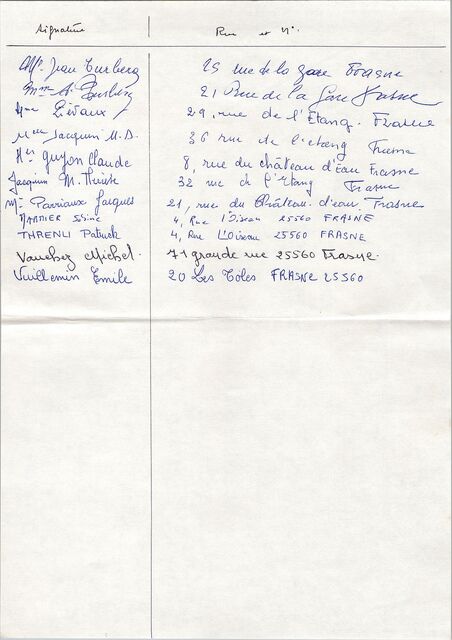 Signature Rue et N°.
Mr. Jean Turberg 25 rue de la gare Frasne
Mme A. Turberg 21 Rue de la Gare Frasne
Mme 29, rue de l'Etang. Frasne
Jacquin M.D. 36 rue de l'etang Frasne
Mr guyon Claude 8, rue du château d'eau Frasne
Jacquin M. Thérèse 32 rue de l'Etang Frasne
Mr Parriaux Jacques 21, rue du Château d'eau. Frasne
4, Rue l'Oiseau 25560 FRASNE
THRENLI Patrick 4, Rue L'Oiseau 25560 FRASNE
Vauchez Michel. 71 grande rue 25560 Frasne.
Vuillemin Emile 20 Les Toles FRASNE 25560